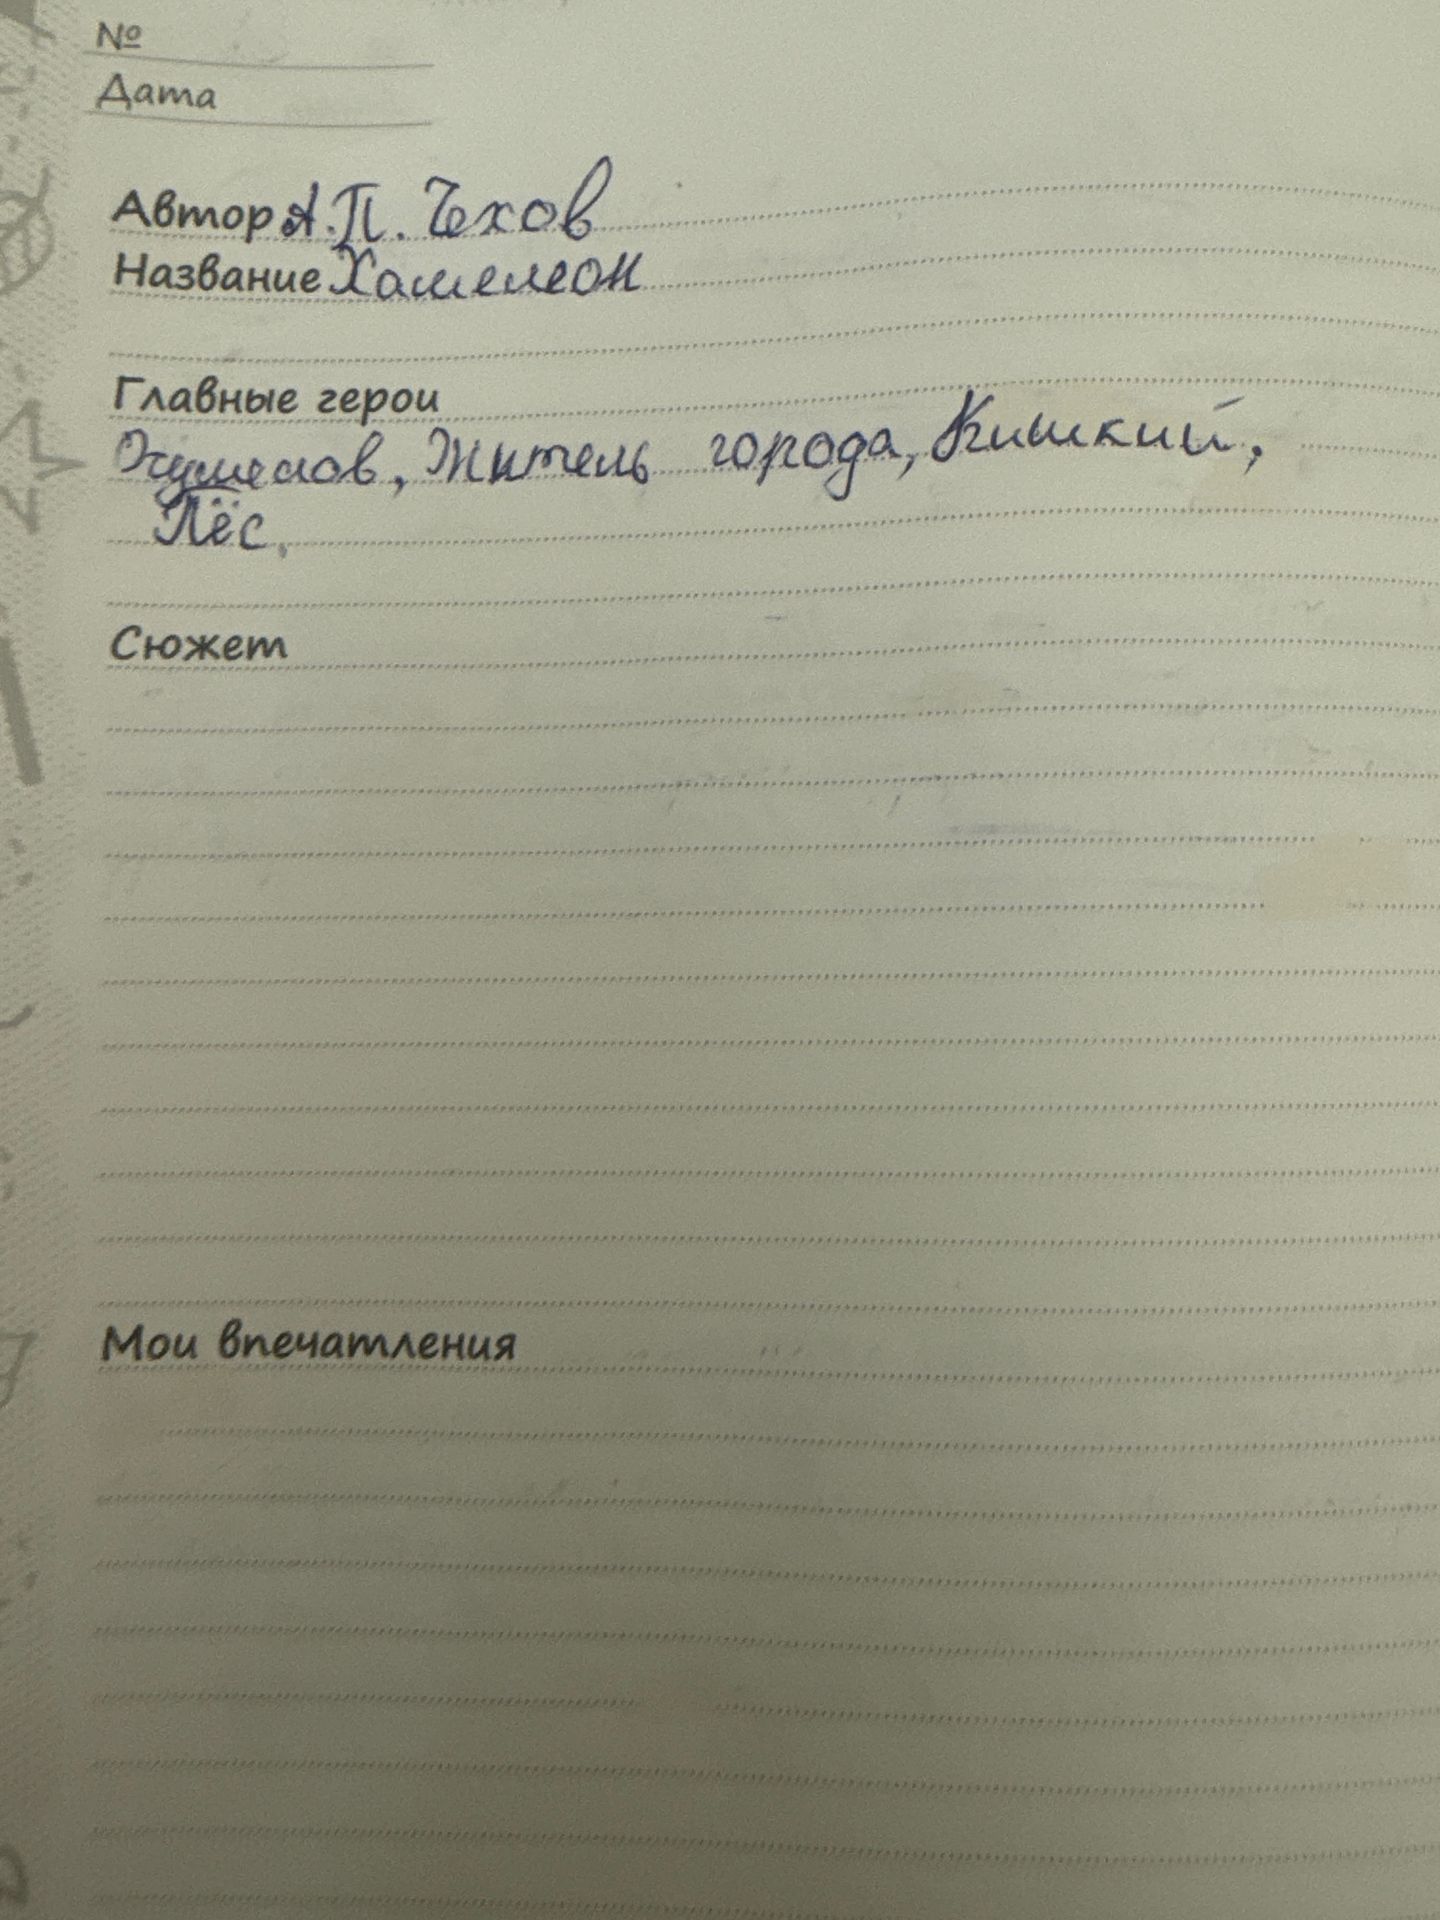 №
Дата
Автор А.П. Чехов
Название Хамелеон
Главные герои
Очумелов, Житель города,
Пёс.
Сюжет
Мои впечатления